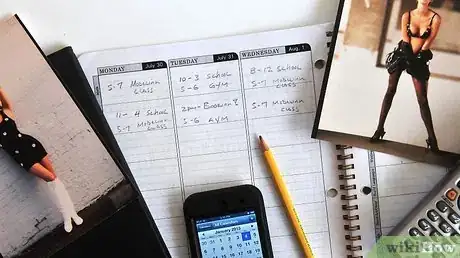 MONDAY July 30
5-7 Modeling
class
11-4 School
5-7 Modeling
class
TUESDAY July 31
10-3 School
5-6 Gym
2pm-Booking?
5-6 Gym
WEDNESDAY Aug. 1
8-12 School
5-7 Modeling
class
5-7 Modeling
class
January 2013
wikiHow